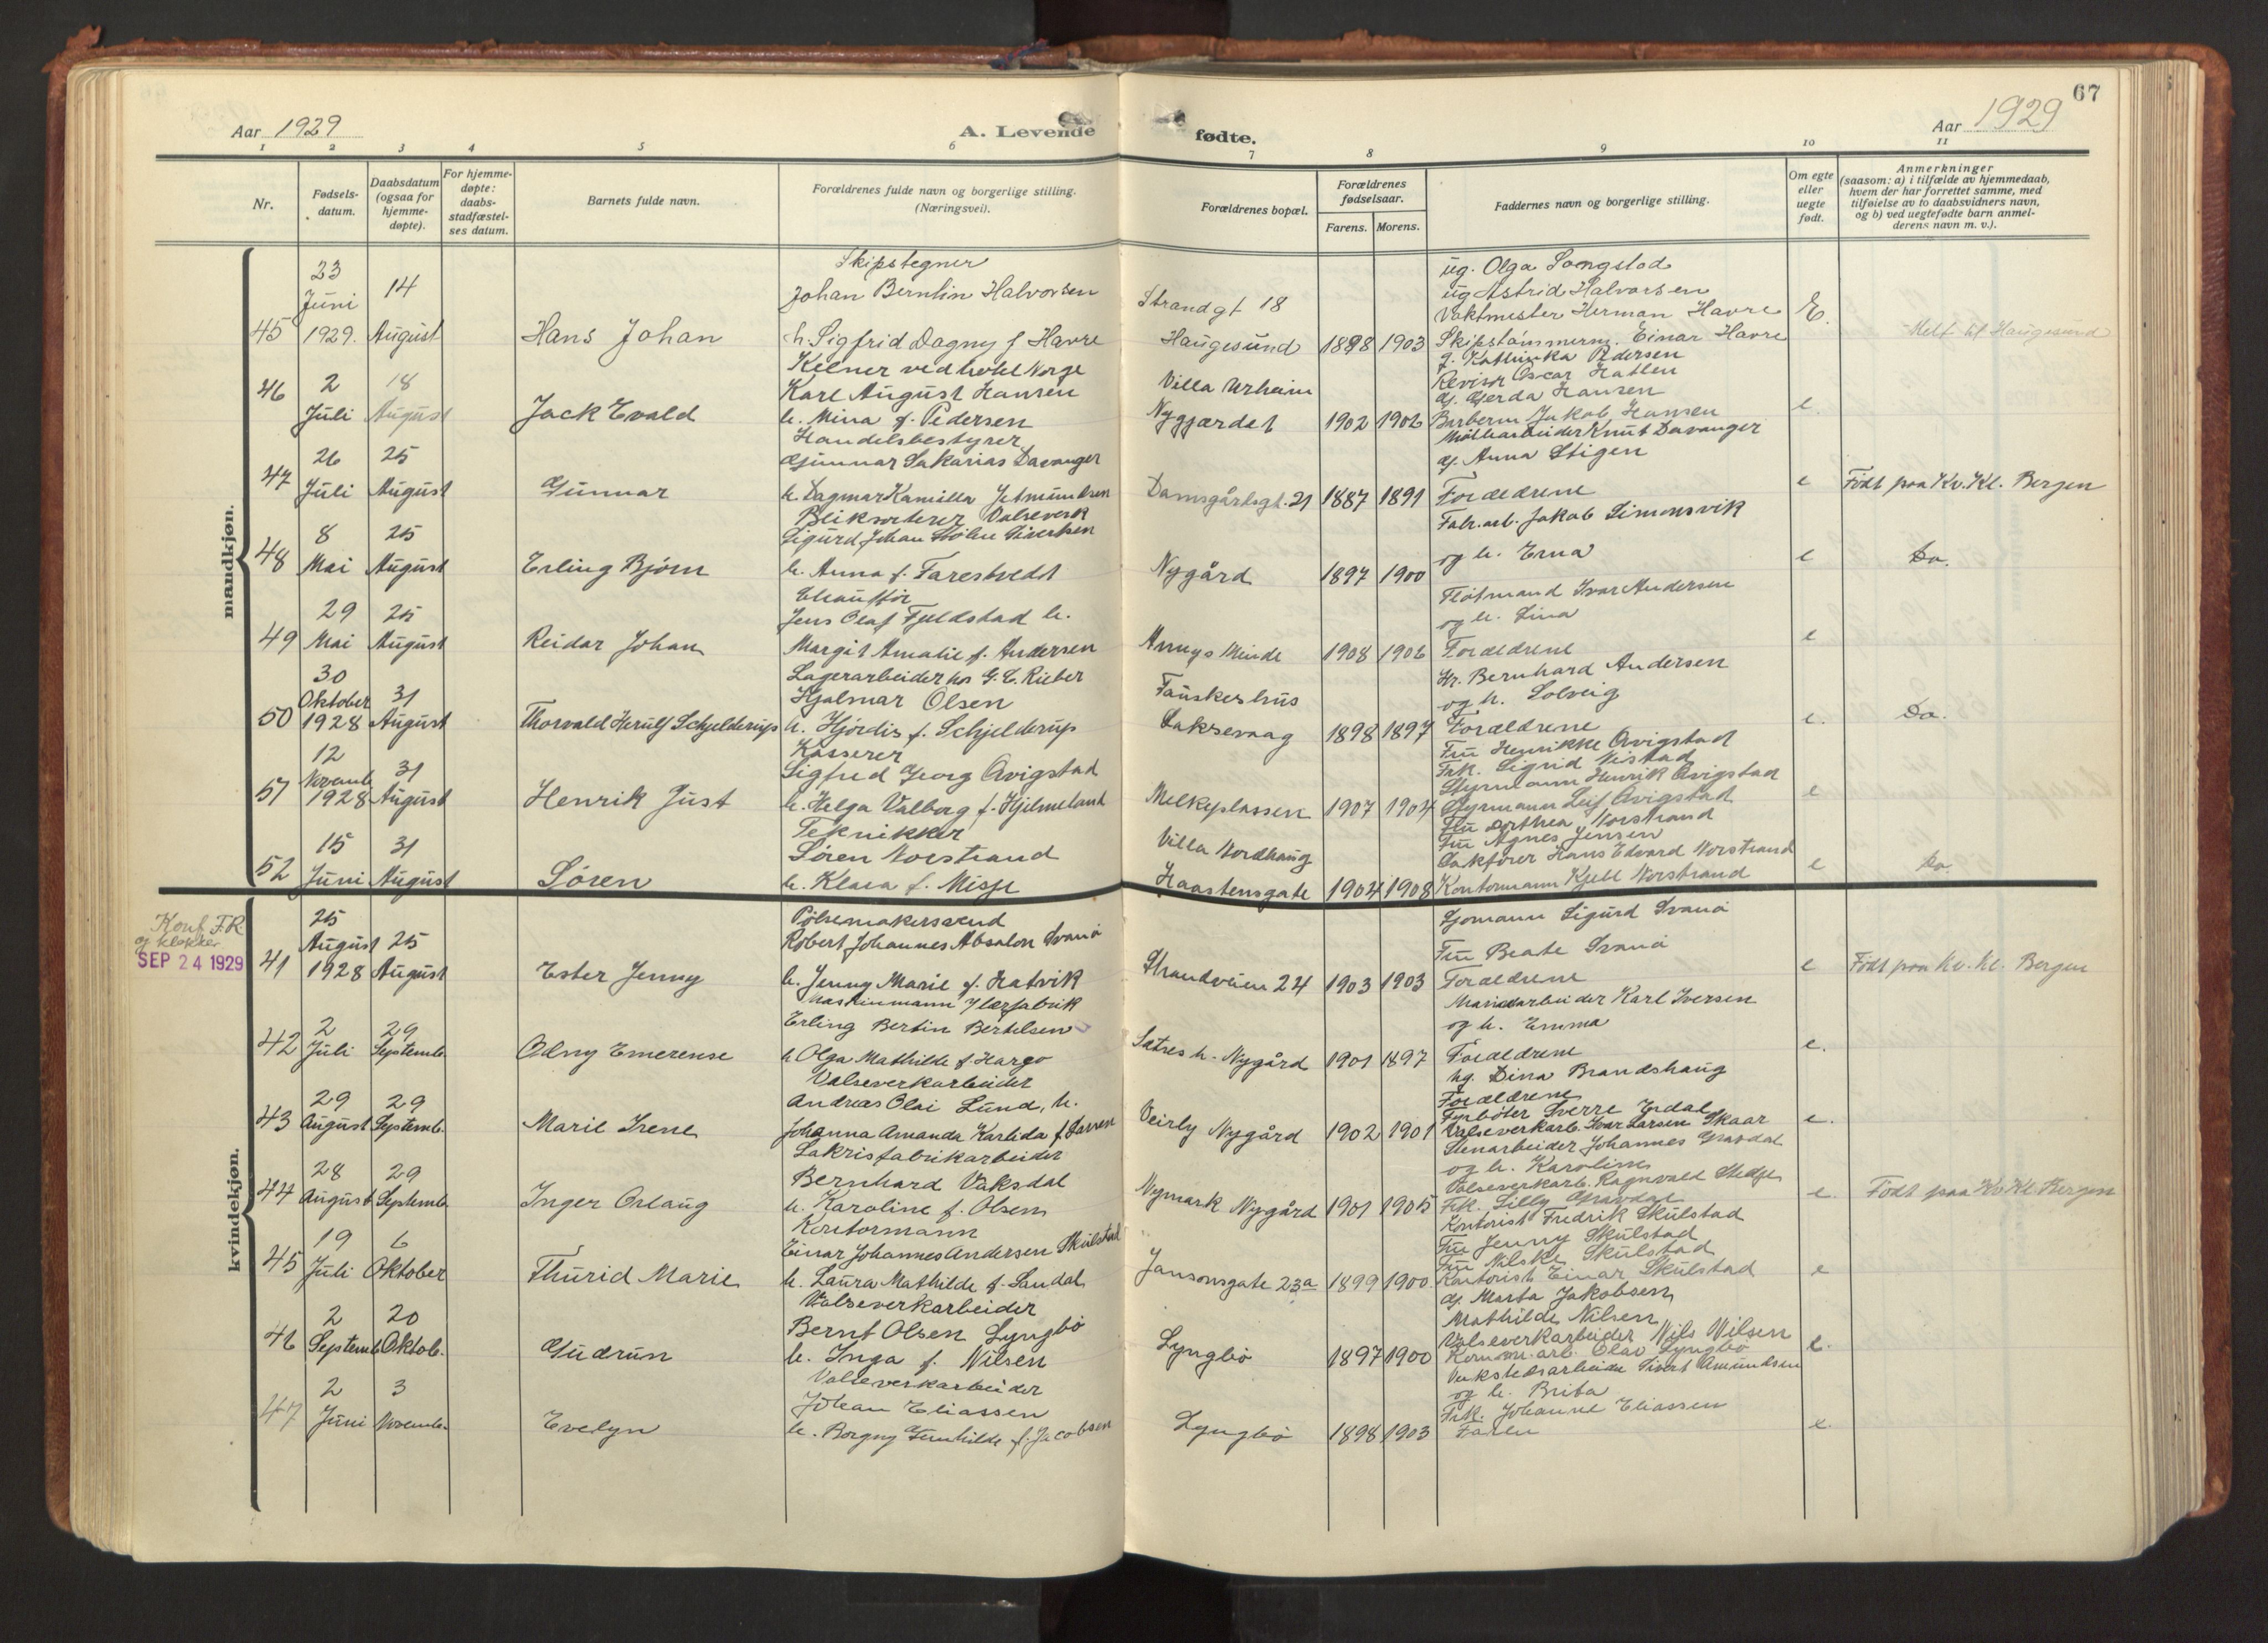 67
Aar 1929
A. Levende fødte.
Aar 1929
1 2 3 4 5 6 7 8 9 10 11
Nr.
Fødsels-
datum.
Daabsdatum
(ogsaa for
hjemme-
døpte).
For hjemme-
døpte:
daabs-
stadfæstel-
ses datum.
Barnets fulde navn.
Forældrenes fulde navn og borgerlige stilling.
(Næringsvei).
Forældrenes bopæl.
Forældrenes
fødselsaar.
Farens. Morens.
Faddernes navn og borgerlige stilling.
Om egte
eller
uegte
født.
Anmerkninger
(saasom: a) i tilfælde av hjemmedaab,
hvem der har forrettet samme, med
tilføielse av to daabsvidners navn,
og b) ved uegtefødte barn anmel-
derens navn m. v.).
mandkjøn.
45
23
Juni
1929.
14
August
Hans Johan
Skipstegner
Johan Berntin Halvorsen
h. Sigfrid Dagny f Havre
Strandgt 18
Haugesund
1898 1903
ug. Olga Songstad
ug Astrid Halvorsen
Vaktmester Herman Havre
Skipstømmerm. Einar Havre
g. Kathinka Pedersen
E.
Melt til Haugesund
46
2
Juli
18
August
Jack Evald
Kelner ved hotel Norge
Karl August Hansen
h. Mina f. Pedersen
Villa Urheim
Nygjærdet
1902 1906
Revisor Oscar Hatlen
g. Gerda Hansen
Barberm. Jakob Hansen
e.
47
26
Juli
25
August
Gunnar
Handelsbestyrer
Gunnar Sakarias Davanger
h. Dagmar Kamilla Jetmundsen
Damsgårdsgt. 21
1887 1891
Knut Davanger
g. Anna Stigen
Forældrene
e
Født paa Kv. Kl. Bergen
48
8
Mai
25
August
Erling Bjørn
Bliksorterer Valseverk
Sigurd Johan Sivertsen
h. Anna f. Farestvedt
Nygård
1897 1900
Fabr. arb. Jakob Simonsvik
og h. Erna
e
Do.
49
29
Mai
25
August
Reidar Johan
Chauffør
Jens Olaf Fjeldstad h.
Margit Amalie f. Andersen
Annys Minde
1908 1906
Flötmand Ivar Andersen
og h. Lina
Forældrene
e
50
30
Oktober
1928
31
August
Thorvald Herulf Schjelderup
Lagerarbeider hos G. C. Rieber
Hjalmar Olsen
h. Hjørdis f. Schjelderup
Fauskes hus
Laksevaag
1898 1897
Hr. Bernhard Andersen
og h. Solveig
Forældrene
e.
Do.
51
12
Novemb
1928
31
August
Henrik Just
Kasserer
Sigfred Georg Qvigstad
h. Helga Valborg f. Hjelmeland
Melkeplassen
1907 1904
Fru Henrikke Qvigstad
Frk. Sigrid Nistad
Styrmann Henrik Qvigstad
Styrmann Leif Qvigstad
e
52
15
Juni
31
August
Søren
Teknikker
Søren Norstrand
h. Klara f. Misje
Villa Nordhaug
Haastensgate
1904 1908
Fru Dorthea Norstrand
Fru Agnes Jensen
Hans Edvard Norstrand
Kontormann Kjell Norstrand
e
Do.
kvindekjøn.
Konf F.R.
og klokker
SEP 24 1929
41
25
August
1928
25
August
Ester Jenny
Pølsemakersvend
Robert Johannes Absalon Svanø
h. Jenny Marie f. Hatvik
Strandveien 24
1903 1903
Sjømann Sigurd Svanø
Fru Beate Svanø
Forældrene
e
Født paa Kv. Kl. Bergen
42
2
Juli
29
Septemb.
Odny Emerense
Maskinmann
Erling Bertin Bertelsen
h Olga Mathilde f Hargo
Sætres h. Nygård
1901 1897
Karl Iversen
og h. Emma
Forældrene
e.
43
29
August
29
Septemb.
Marie Irene
Valseverkarbeider
Andreas Olai Lund, h.
Johanna Amanda Karlida f. Larsen
Veirly Nygård
1902 1901
ug. Dina Brandshaug
Forældrene
Fyrbøter Sverre Erdal
Valseverkarb. Ivar Larsen Skaar
e.
44
28
August
29
Septemb.
Inger Oslaug
Lakrisfabrikarbeider
Bernhard Vaksdal
h. Karoline f. Olsen
Nymark Nygård
1901 1905
Stenarbeider Johannes Gravdal
og h. Karoline
Valseverkarb. Ragnvald Stedje
Frk. Lilly Gravdal
e.
Født paa Kv. Kl. Bergen
45
19
Juli
6
Oktober
Thurid Marie
Kontormann
Einar Johannes Andersen Skulstad
h. Laura Mathilde f. Sandal
Jansonsgate 23a
1899 1900.
Kontorist Fredrik Skulstad
Fru Jenny Skulstad
Fru Skulstad
Kontorist Einar Skulstad
e
46
2
Septemb
20
Oktob.
Gudrun
Valseverkarbeider
Bernt Olsen Lyngbø
h. Inga f. Nilsen
Lyngbø
1897 1900
g. Marta Jakobsen
Mathilde Nilsen
Valseverkarbeider Nils Nilsen
Komm. arb. Olav Lyngbø
e.
47
2
Juni
3
Novemb.
Evelyn
Valseverkarbeider
Johan Eliassen
h. Borgny Gunhilde f. Jacobsen
Lyngbø
1898 1903
Verkstedsarbeider Sivert Amundsen
og h. Brita
Frk. Johanne Eliassen
Faren
e.